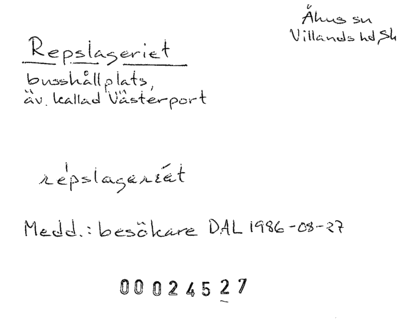 Åhus sn
Villands hd, Sk
Repslageriet
busshållplats,
äv. kallad Västerport
répslageriét
Medd.: besökare DAL 1986-08-27
00024527